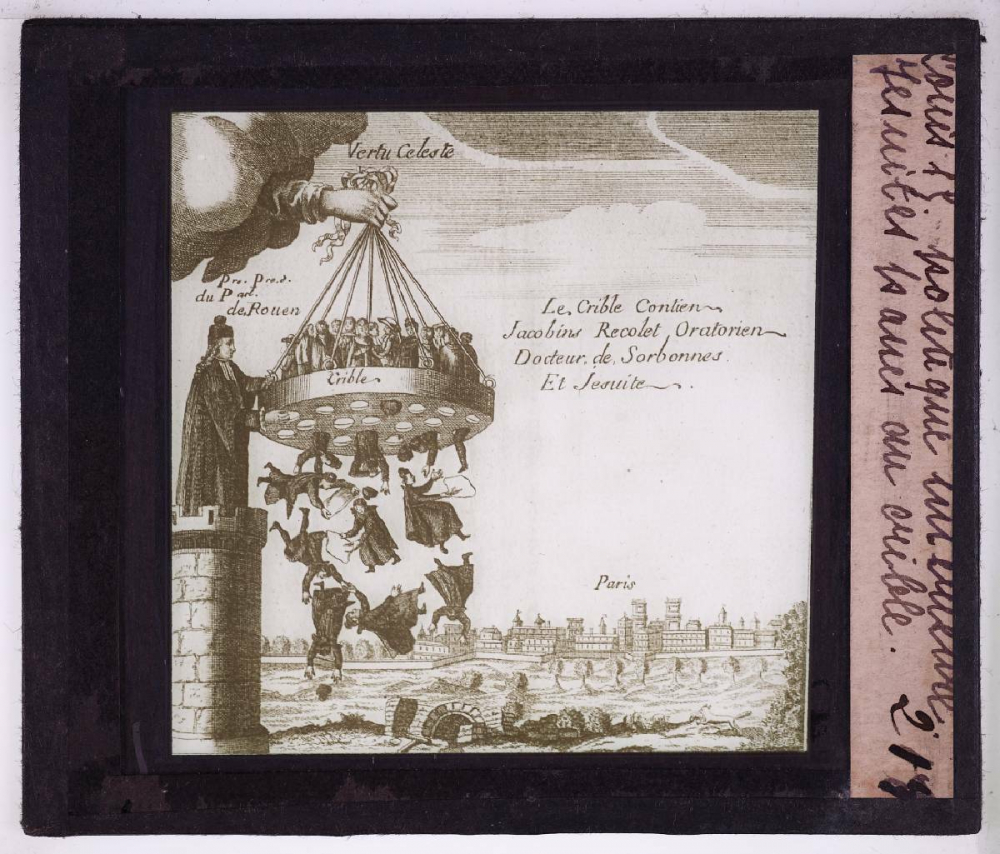 Vertu Celeste
Pre. Pres.
du Part.
de Rouen
Le Crible Contien
Jacobins Recolet Oratorien
Docteur de Sorbonnes.
Et Jesuite.
Crible
Paris
Louis politique
Jesuites au crible.